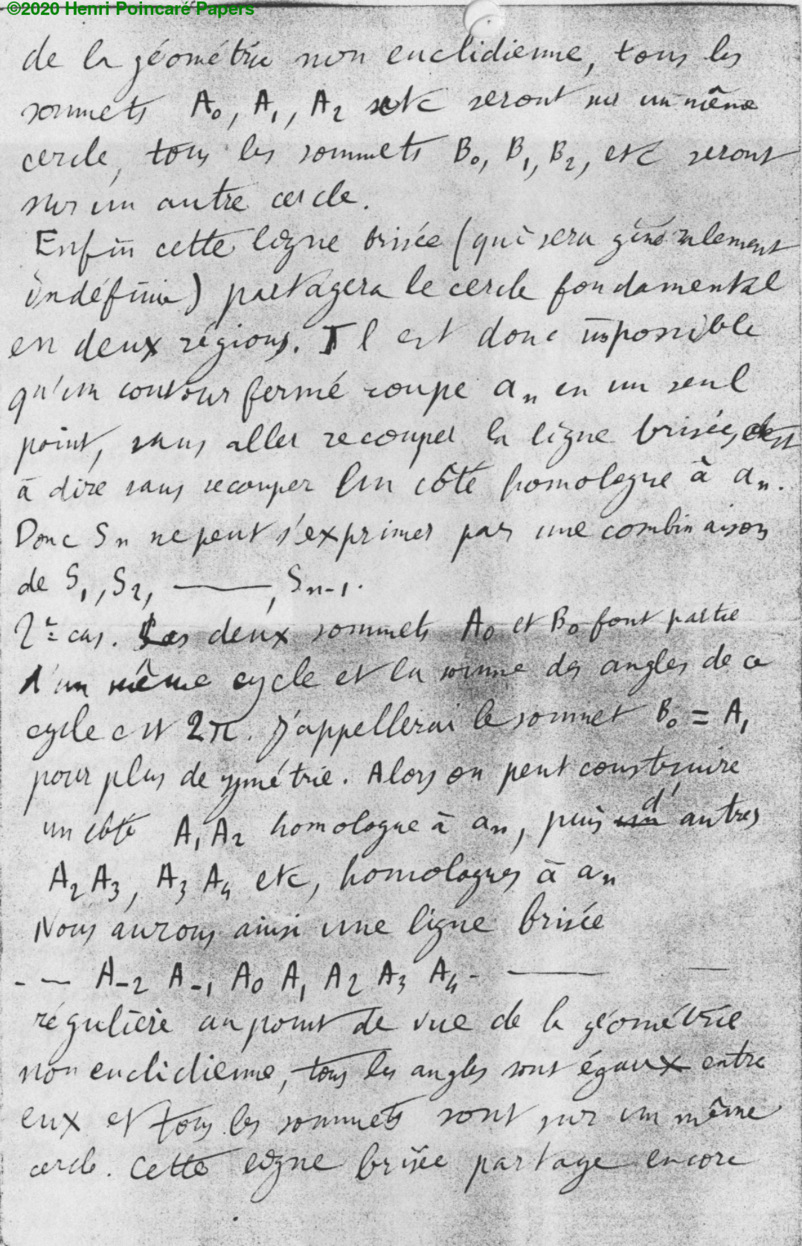 ©2020 Henri Poincaré Papers
de la géométrie non euclidienne, tous les
sommets A₀, A₁, A₂ etc seront sur un même
cercle, tous les sommets B₀, B₁, B₂, etc seront
sur un autre cercle.
Enfin cette ligne brisée (qui sera généralement
indéfinie) partagera le cercle fondamental
en deux régions. Il est donc impossible
qu'un contour fermé coupe aₙ en un seul
point, sans aller recouper la ligne brisée, c'est
à dire sans recouper un côté homologue à aₙ.
Donc Sₙ ne peut s'exprimer par une combinaison
de S₁, S₂, ——, Sₙ₋₁.
2ᵉ cas. Les deux sommets A₀ et B₀ font partie
d'un même cycle et la somme des angles de ce
cycle est 2π. J'appellerai le sommet B₀ = A₁
pour plus de symétrie. Alors on peut construire
un côté A₁A₂ homologue à aₙ, puis d'autres
A₂A₃, A₃A₄ etc, homologues à aₙ
Nous aurons ainsi une ligne brisée
- — A₋₂ A₋₁ A₀ A₁ A₂ A₃ A₄ - —— —
régulière au point de vue de la géométrie
non euclidienne, tous les angles sont égaux entre
eux et tous les sommets sont sur un même
cercle. Cette ligne brisée partage encore